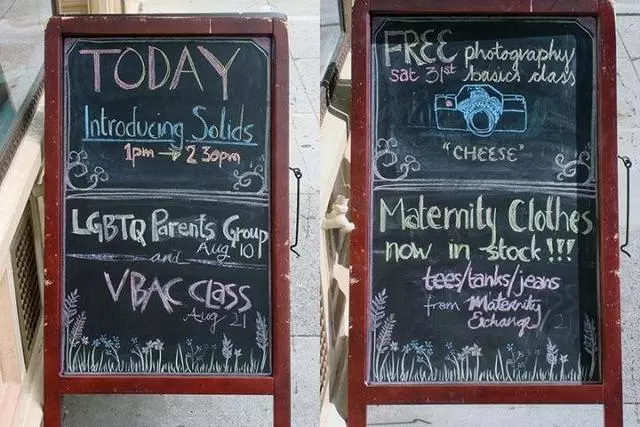 TODAY
Introducing Solids
1pm → 2 30pm
LGBTQ Parents Group
Aug 10
and
VBAC Class
Aug 21
FREE photography
sat 31st basics class
"CHEESE"
Maternity Clothes
now in stock!!!
tees/tanks/jeans
from Maternity
Exchange
21